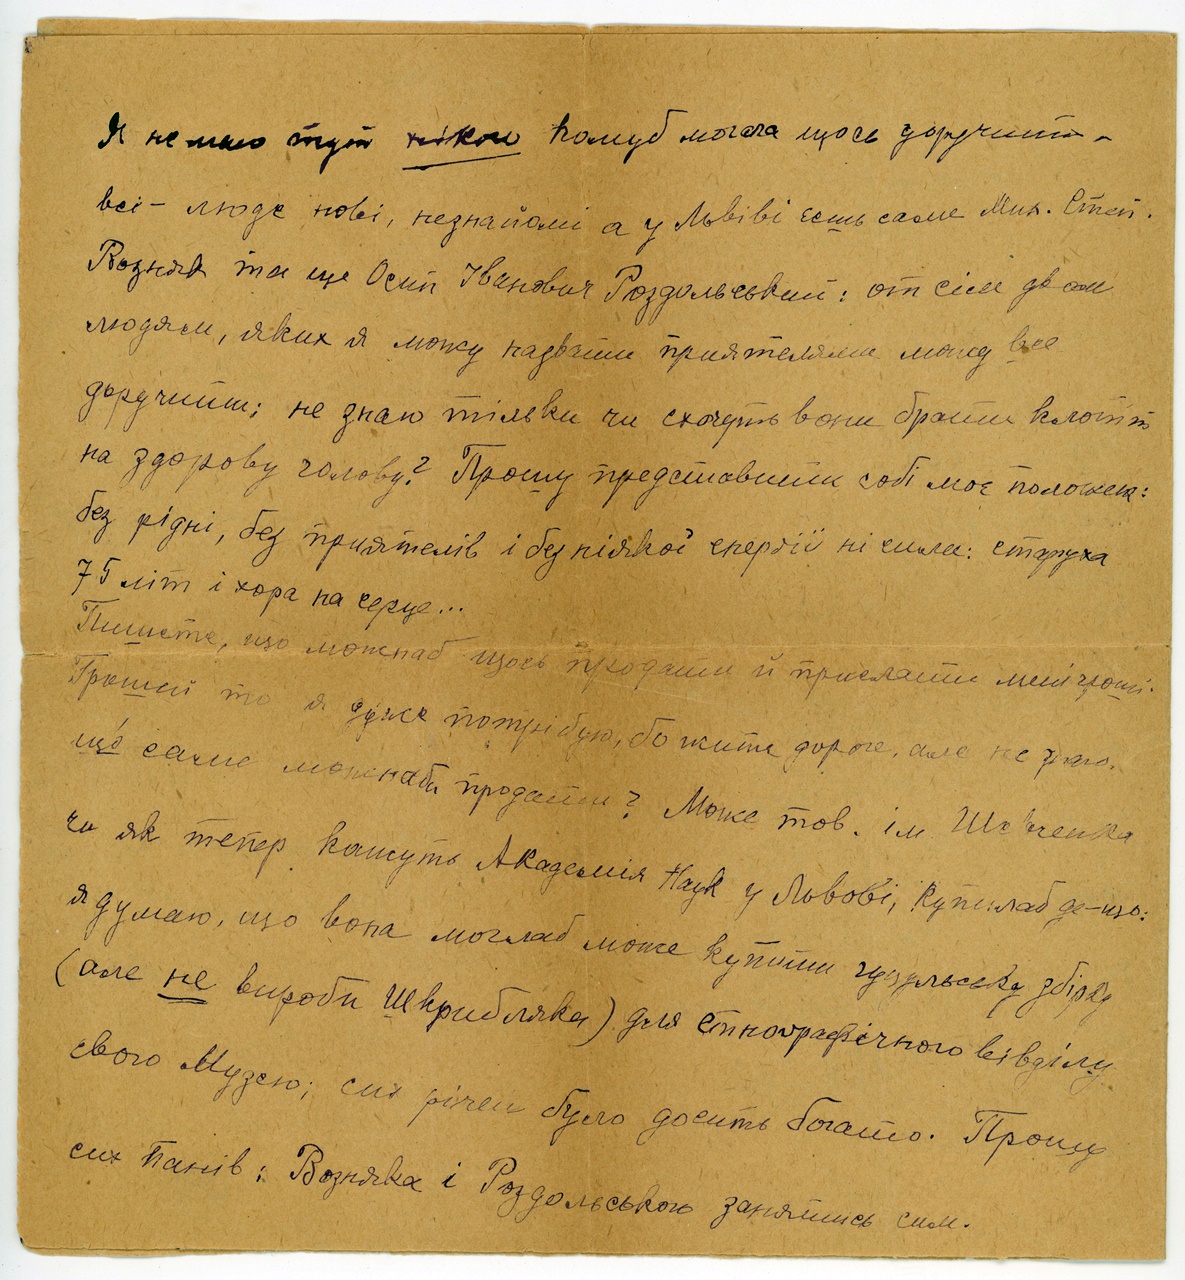 Я не маю тут нікого комуб могла щось доручити –
всі – люде нові, незнайомі а у Львіві єсть саме Мих. Степ.
Возняк та ще Осип Іванович Роздольський: от сим двом
людям, яких я можу назвати приятелями можу все
доручити; не знаю тільки чи схочуть вони брати клопіт
на здорову голову? Прошу представити собі моє положен:
без рідні, без приятелів і без ніякої енергії ні сили: старуха
75 літ і хора на серце...
Пишете, що можнаб щось продати й прислати мені гроші.
Грошей то я дуже потрібую, бо жити дорого, але не знаю,
що саме можнаби продати? Може тов. ім Шевченка
чи як тепер кажуть Академія Наук у Львові, купилаб де-що:
я думаю, що вона моглаб може купити гуцульську збірку
(але не вироби Шкрибляка) для етнографічного відділу
свого Музею; сих річей було досить богато. Прошу
сих Панів: Возняка і Роздольського занятись сим.